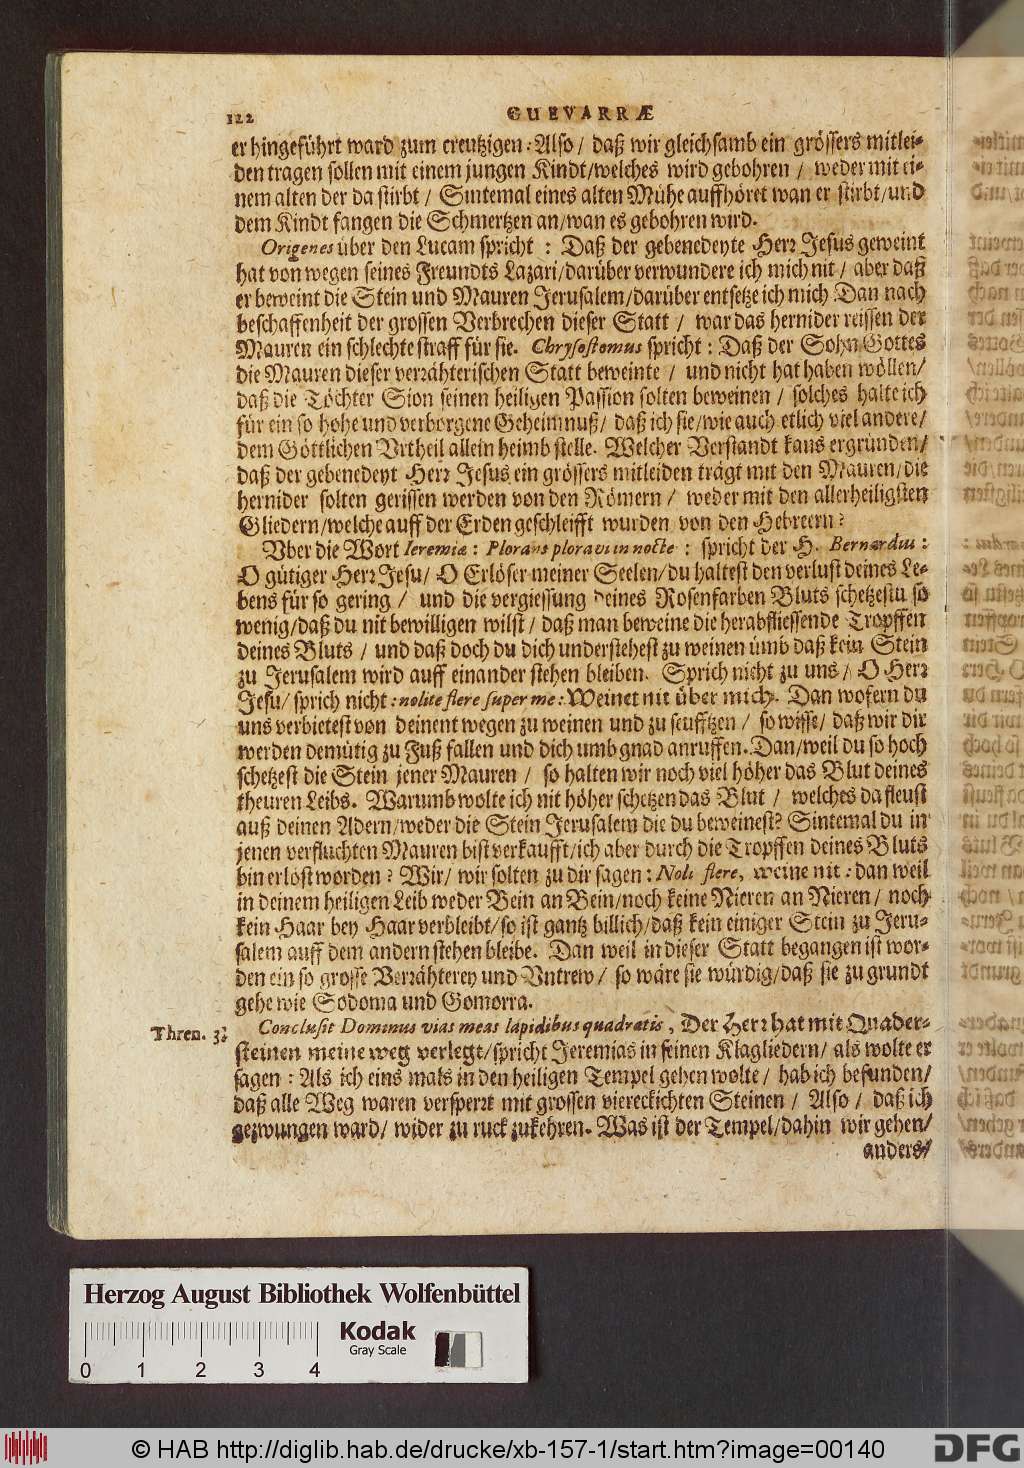 122
GUEVARRÆ
er hingeführt ward zum creutzigen: Also / daß wir gleichsamb ein grössers mitlei-
den tragen sollen mit einem jungen Kindt/welches wird gebohren / weder mit ei-
nem alten der da stirbt / Sintemal eines alten Mühe auffhöret wan er stirbt/und
dem Kindt fangen die Schmertzen an/wan es gebohren wird.
Origenes über den Lucam spricht : Daß der gebenedeyte Herr Jesus geweint
hat von wegen seines Freundts Lazari/darüber verwundere ich mich nit / aber daß
er beweint die Stein und Mauren Jerusalem/darüber entsetze ich mich Dan nach
beschaffenheit der grossen Verbrechen dieser Statt / war das hernider reissen der
Mauren ein schlechte straff für sie. Chrysostomus spricht: Daß der Sohn Gottes
die Mauren dieser verrähterischen Statt beweinte / und nicht hat haben wöllen/
daß die Töchter Sion seinen heiligen Passion solten beweinen / solches halte ich
für ein so hohe und verborgene Geheimnuß/ daß ich sie/wie auch etlich viel andere/
dem Göttlichen Vrtheil allein heimb stelle. Welcher Verstandt kans ergründen/
daß der gebenedeyt Herr Jesus ein grössers mitleiden trägt mit den Mauren/die
hernider solten gerissen werden von den Römern / weder mit den allerheiligsten
Gliedern/welche auff der Erden geschleifft wurden von den Hebreern?
Vber die Wort Ieremiæ: Plorans ploravi in nocte : spricht der H. Bernardus:
O gütiger Herr Jesu/ O Erlöser meiner Seelen/du haltest den verlust deines Le-
bens für so gering / und die vergiessung deines Rosenfarben Bluts schetzestu so
wenig/daß du nit bewilligen wilst/ daß man beweine die herabfliessende Tropffen
deines Bluts / und daß doch du dich understehest zu weinen ümb daß kein Stein
zu Jerusalem wird auff einander stehen bleiben. Sprich nicht zu uns/ O Herr
Jesu/ sprich nicht: nolite flere super me: Weinet nit über mich. Dan wofern du
uns verbietest von deinent wegen zu weinen und zu seufftzen / so wisse/ daß wir dir
werden demütig zu Fuß fallen und dich umb gnad anruffen. Dan/weil du so hoch
schetzest die Stein jener Mauren / so halten wir noch viel höher das Blut deines
theuren Leibs. Warumb wolte ich nit höher schetzen das Blut / welches da fleust
auß deinen Adern/weder die Stein Jerusalem die du beweinest? Sintemal du in
jenen verfluchten Mauren bist verkaufft/ich aber durch die Tropffen deines Bluts
bin erlöst worden? Wir/ wir solten zu dir sagen: Noli flere, weine nit: dan weil
in deinem heiligen Leib weder Bein an Bein/noch keine Nieren an Nieren / noch
kein Haar bey Haar verbleibt/so ist gantz billich/daß kein einiger Stein zu Jeru-
salem auff dem andern stehen bleibe. Dan weil in dieser Statt begangen ist wor-
den ein so grosse Verrähterey und Vntrew/ so wäre sie würdig/daß sie zu grundt
gehe wie Sodoma und Gomorra.
Thren. 3.
Conclusit Dominus vias meas lapidibus quadratis, Der Herr hat mit Quader-
steinen meine weg verlegt/spricht Jeremias in seinen Klagliedern/ als wolte er
sagen: Als ich eins mals in den heiligen Tempel gehen wolte / hab ich befunden/
daß alle Weg waren versperrt mit grossen viereckichten Steinen / Also / daß ich
gezwungen ward/ wider zu ruck zukehren. Was ist der Tempel/dahin wir gehen/
anders/
Herzog August Bibliothek Wolfenbüttel
Kodak
Gray Scale
0 1 2 3 4
© HAB http://diglib.hab.de/drucke/xb-157-1/start.htm?image=00140
DFG